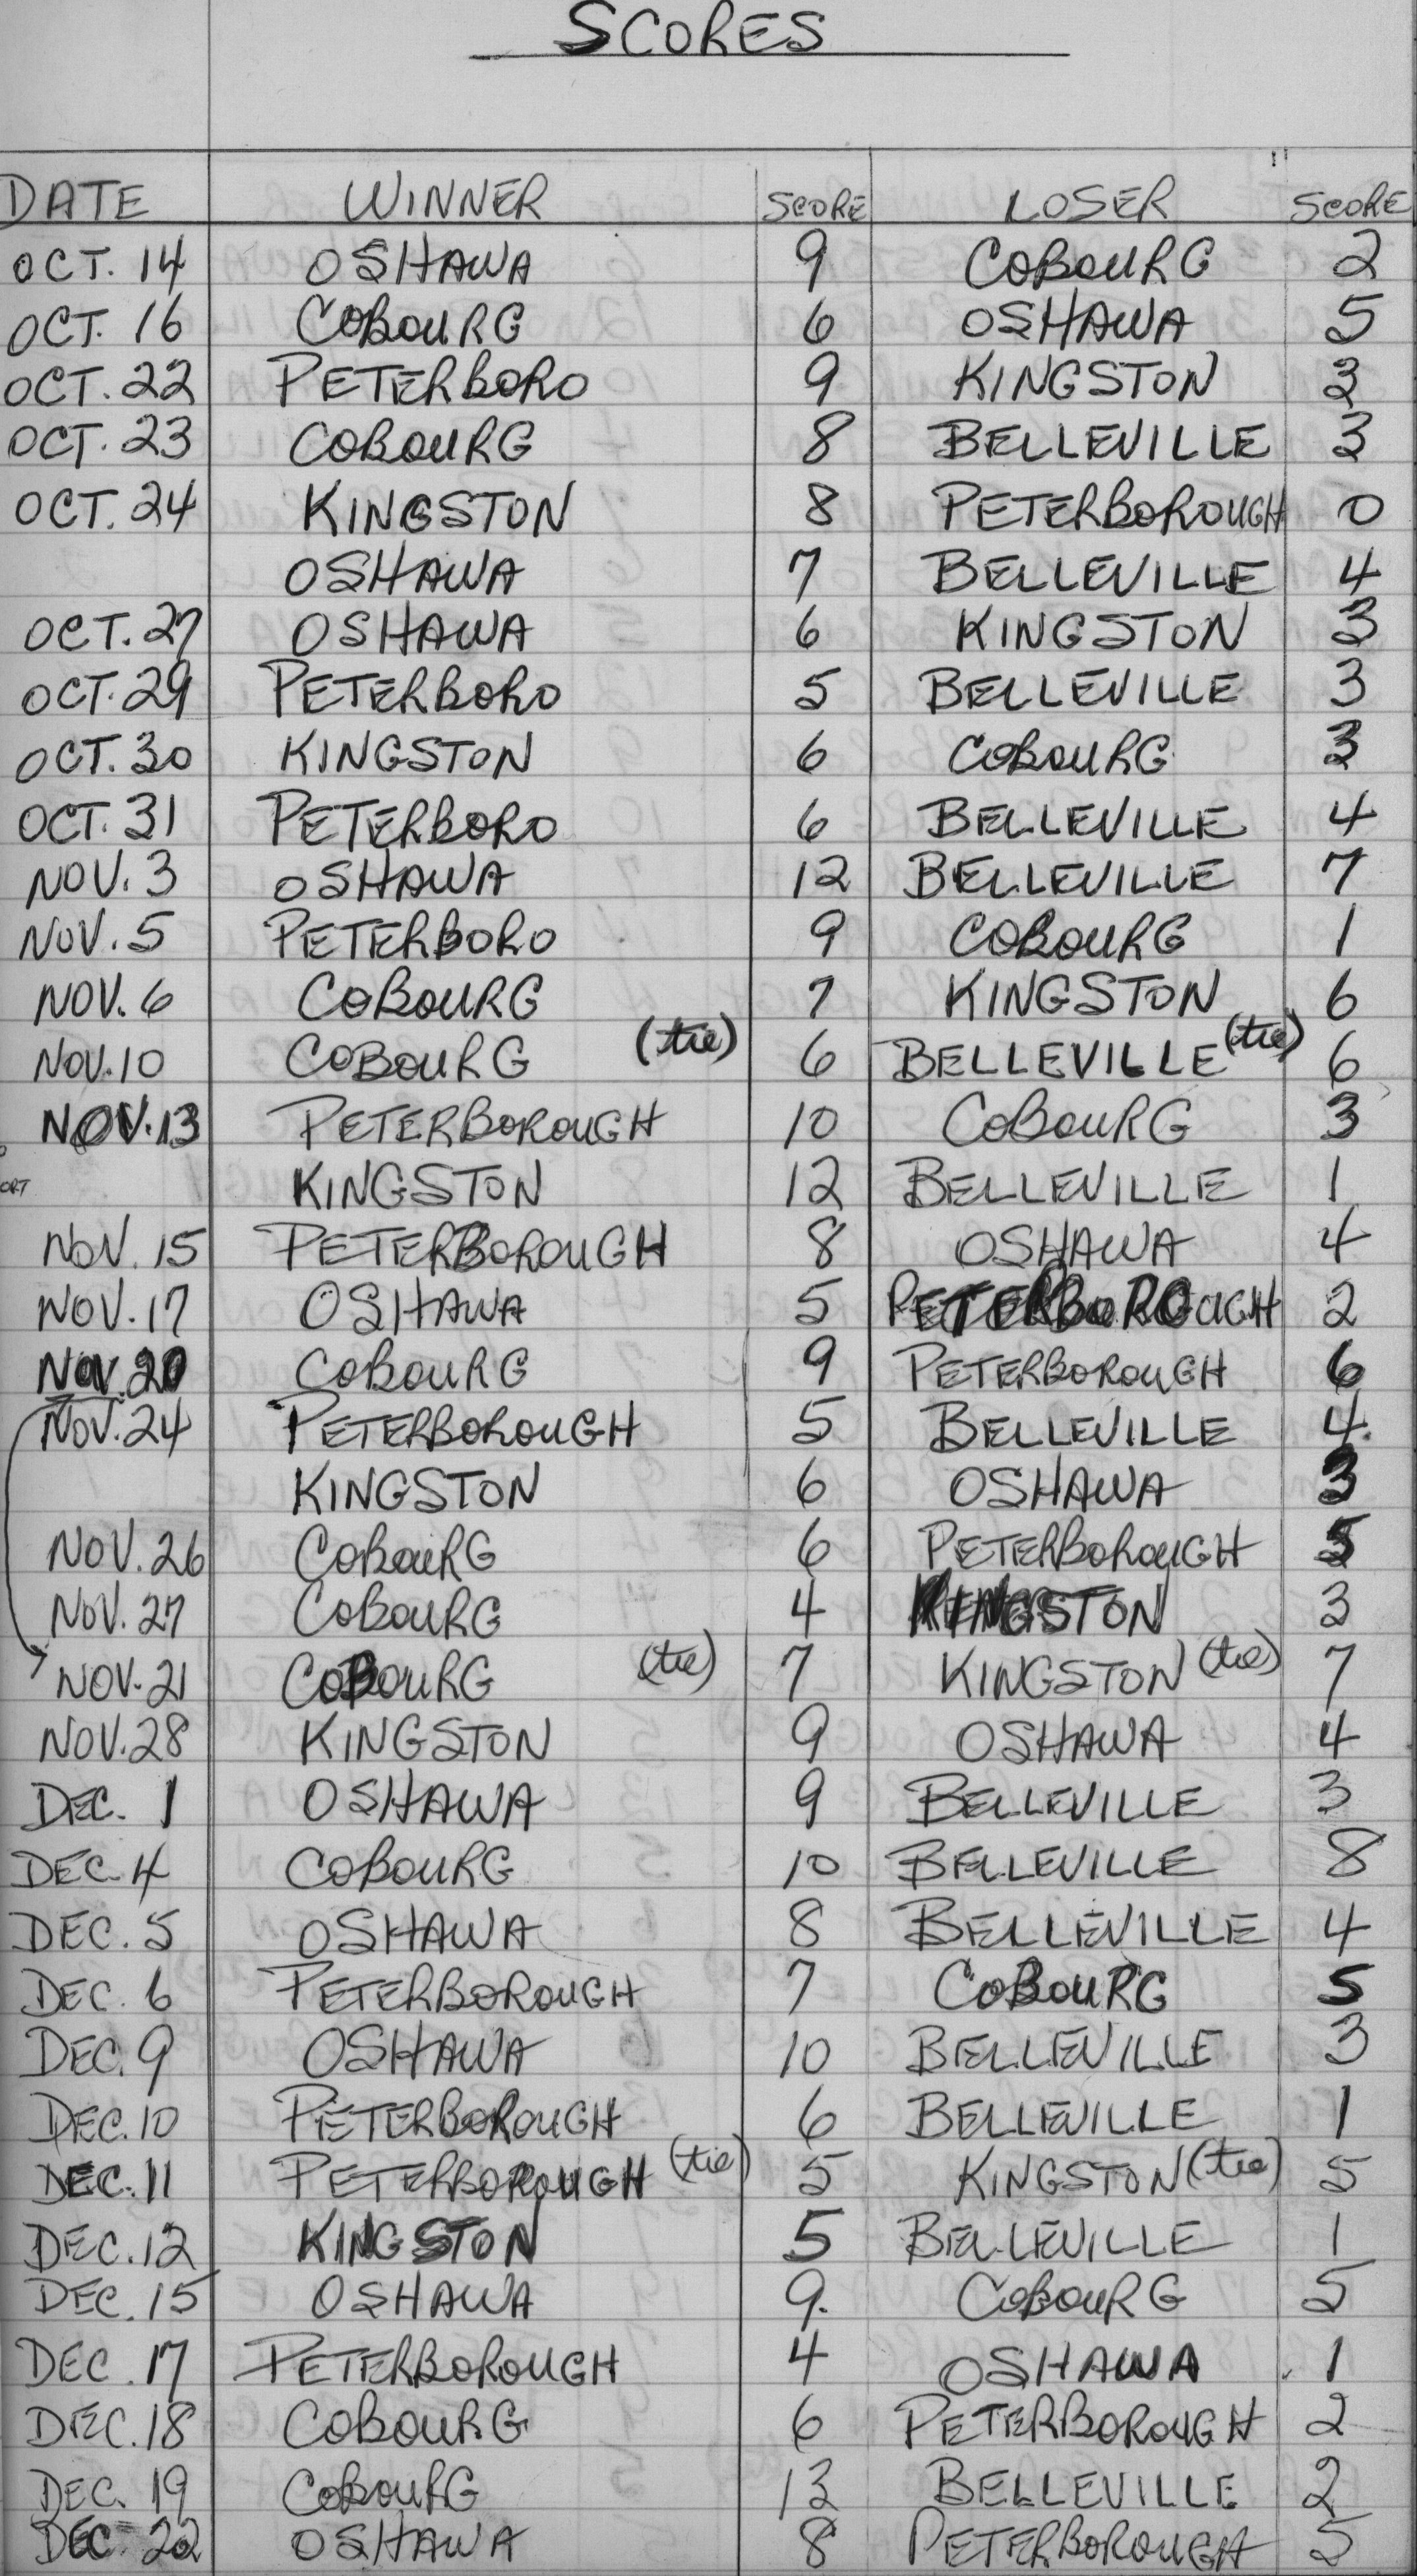 SCORES
DATE WINNER SCORE LOSER SCORE
OCT. 14 OSHAWA 9 COBOURG 2
OCT. 16 COBOURG 6 OSHAWA 5
OCT. 22 PETERBORO 9 KINGSTON 3
OCT. 23 COBOURG 8 BELLEVILLE 3
OCT. 24 KINGSTON 8 PETERBOROUGH 0
OSHAWA 7 BELLEVILLE 4
OCT. 27 OSHAWA 6 KINGSTON 3
OCT. 29 PETERBORO 5 BELLEVILLE 3
OCT. 30 KINGSTON 6 COBOURG 3
OCT. 31 PETERBORO 6 BELLEVILLE 4
NOV. 3 OSHAWA 12 BELLEVILLE 7
NOV. 5 PETERBORO 9 COBOURG 1
NOV. 6 COBOURG 7 KINGSTON 6
NOV. 10 COBOURG (tie) 6 BELLEVILLE (tie) 6
NOV. 13 PETERBOROUGH 10 COBOURG 3
KINGSTON 12 BELLEVILLE 1
NOV. 15 PETERBOROUGH 8 OSHAWA 4
NOV. 17 OSHAWA 5 PETERBOROUGH 2
NOV. 20 COBOURG 9 PETERBOROUGH 6
NOV. 24 PETERBOROUGH 5 BELLEVILLE 4
KINGSTON 6 OSHAWA 3
NOV. 26 COBOURG 6 PETERBOROUGH 5
NOV. 27 COBOURG 4 KINGSTON 3
NOV. 21 COBOURG (tie) 7 KINGSTON (tie) 7
NOV. 28 KINGSTON 9 OSHAWA 4
DEC. 1 OSHAWA 9 BELLEVILLE 3
DEC. 4 COBOURG 10 BELLEVILLE 8
DEC. 5 OSHAWA 8 BELLEVILLE 4
DEC. 6 PETERBOROUGH 7 COBOURG 5
DEC. 9 OSHAWA 10 BELLEVILLE 3
DEC. 10 PETERBOROUGH 6 BELLEVILLE 1
DEC. 11 PETERBOROUGH (tie) 5 KINGSTON (tie) 5
DEC. 12 KINGSTON 5 BELLEVILLE 1
DEC. 15 OSHAWA 9. COBOURG 5
DEC. 17 PETERBOROUGH 4 OSHAWA 1
DEC. 18 COBOURG 6 PETERBOROUGH 2
DEC. 19 COBOURG 13 BELLEVILLE 2
DEC. 22 OSHAWA 8 PETERBOROUGH 5